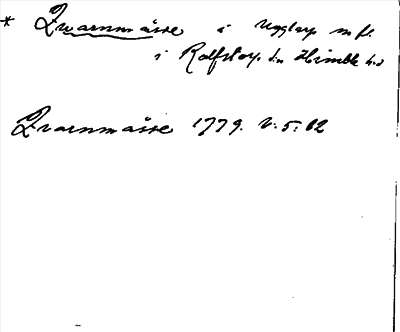 * Qwarnmåsse i Ugglarp m fl.
i Rolfstorp. sn Himle hd
Qvarnmåsse 1779. V: 5: 12